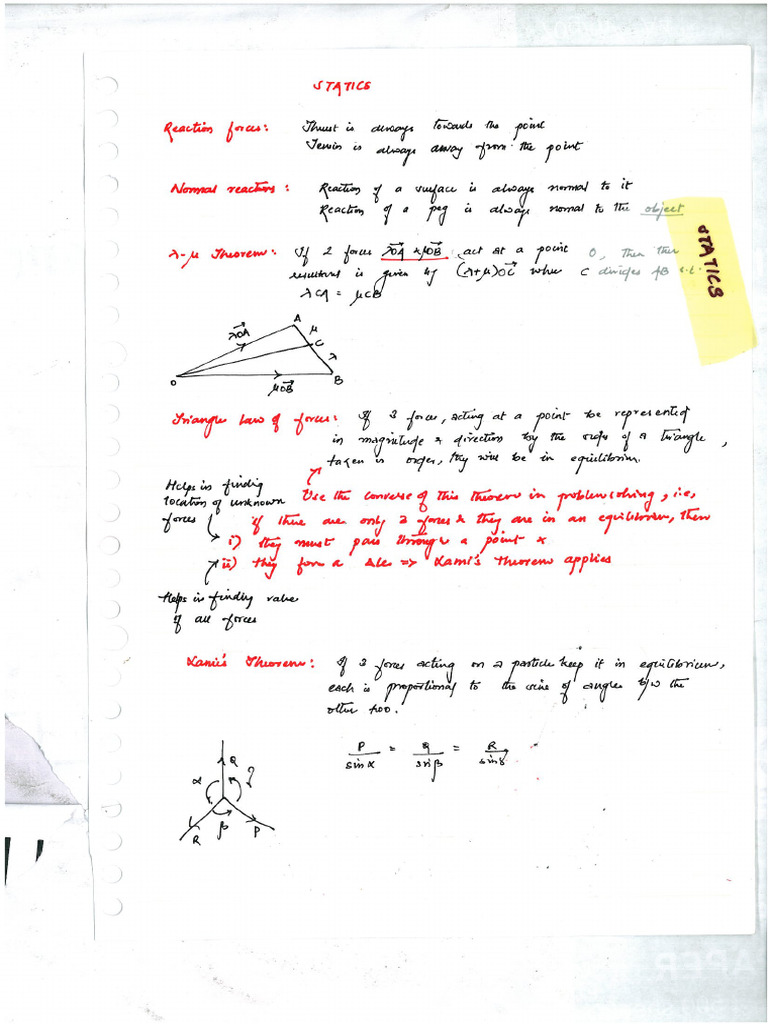 STATICS
Reaction forces: Thrust is always towards the point
Tension is always away from the point
Normal reactions: Reaction of a surface is always normal to it
Reaction of a peg is always normal to the object
STATICS
λ-μ Theorem: If 2 forces λOA & μOB act at a point O, then their
resultant is given by (λ+μ)OC where C divides AB s.t.
λCA = μCB
λOA
A
μ
C
λ
O
μOB
B
Triangles Law of forces: If 3 forces, acting at a point be represented
in magnitude & direction by the sides of a triangle,
taken in order, they will be in equilibrium.
Helps in finding
location of unknown
forces
Use the converse of this theorem in problem solving, i.e,
if there are only 3 forces & they are in an equilibrium, then
i) they must pass through a point &
ii) they form a Δle => Lami's Theorem applies
Helps in finding value
of all forces
Lami's Theorem: If 3 forces acting on a particle keep it in equilibrium,
each is proportional to the sine of angles b/w the
other two.
P/sinα = Q/sinβ = R/sinγ
Q
α
R
β
P